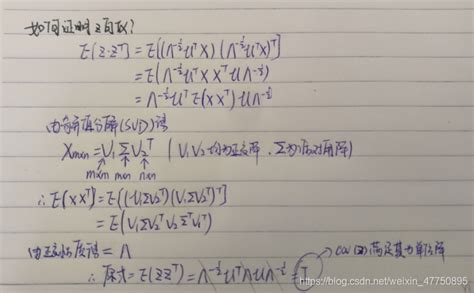 如何证明Z的取?
E(Z·Zᵀ) = E[(Λ^{-½}UᵀX)(Λ^{-½}UᵀX)ᵀ]
= E(Λ^{-½}UᵀXXᵀUΛ^{-½})
= Λ^{-½}UᵀE(XXᵀ)UΛ^{-½}
由奇异值分解(SVD)得
X_{m×n} = V₁ΣV₂ᵀ (V₁V₂均为正交阵,Σ为对角阵)
m×m m×n n×n
∴ E(XXᵀ) = E((V₁ΣV₂ᵀ)(V₁ΣV₂ᵀ)ᵀ)
= E(V₁ΣV₂ᵀV₂ΣᵀV₁ᵀ)
由正交性质得 = Λ
cov(Z)满足其为单位阵
∴ 原式 = E(ZZᵀ) = Λ^{-½}UᵀΛUΛ^{-½} = I
https://blog.csdn.net/weixin_47750895